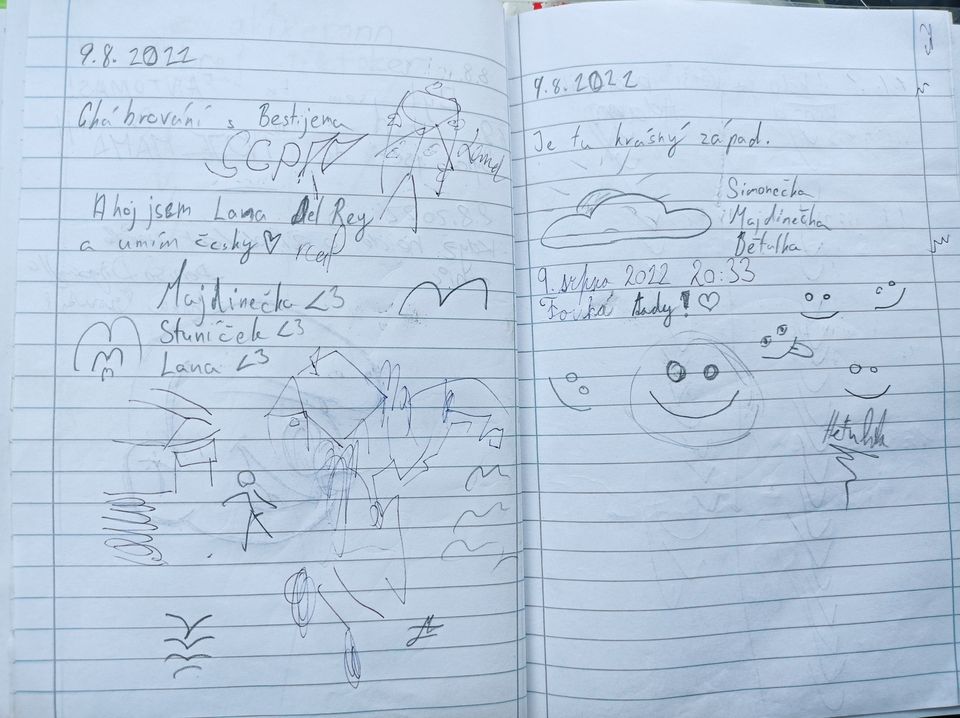 9.8.2022
Chábrování s Bestijema
Ahoj jsem Lana Del Rey
a umím česky ♡
Majdinečka <3
Stuníček <3
Lana <3
9.8.2022
Je tu krásný západ.
Simonečka
Majdinečka
Bětulka
9. srpna 2022 20:33
tady! ♡